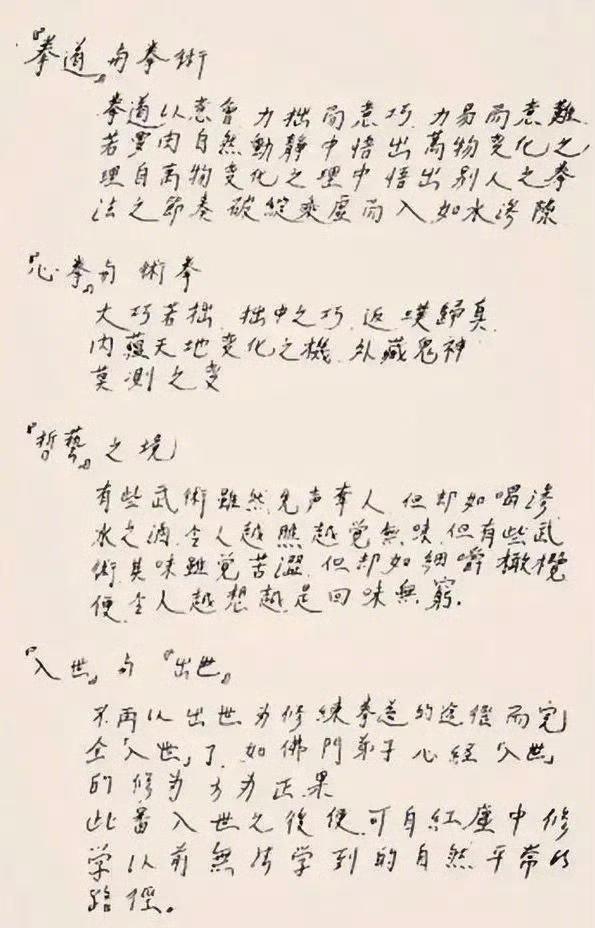 『拳道』与拳術
拳道以意會 力拙而意巧 力易而意難
若要由自然動静中悟出萬物变化之
理自萬物变化之理中悟出别人之拳
法之節奏破綻乘虚而入 如水滲隙
『心拳』与術拳
大巧若拙 拙中之巧 返璞歸真
内蘊天地变化之機 外藏鬼神
莫測之变
『哲藝』之境
有些武術雖然先声奪人 但却如喝滲
水之酒 令人越瞧越觉無味 但有些武
術其味雖觉苦澀 但却如細嚼橄欖
便令人越想越是回味無窮.
『入世』与『出世』
不再以出世为修練拳道的途徑而完
全「入世」了 如佛門弟子 心経「入世」
的修为 方为正果
此番入世之後便可自紅塵中修
学以前無法学到的自然平常的
路徑。